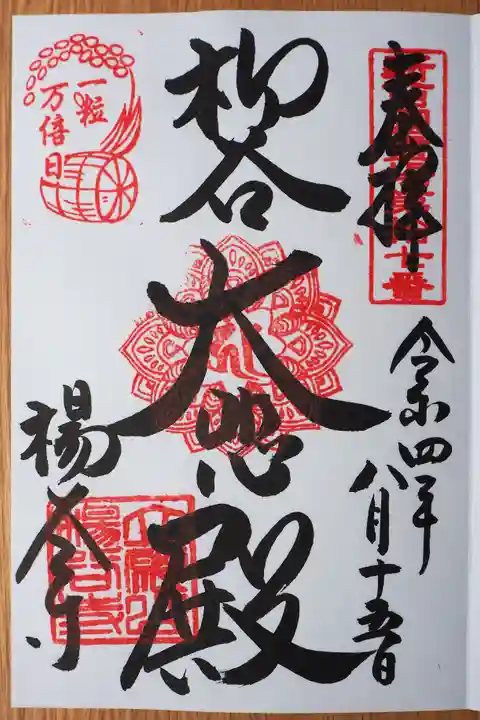 奉拝
令和四年
八月十五日
柳谷
大悲殿
楊谷寺
一粒
万倍日